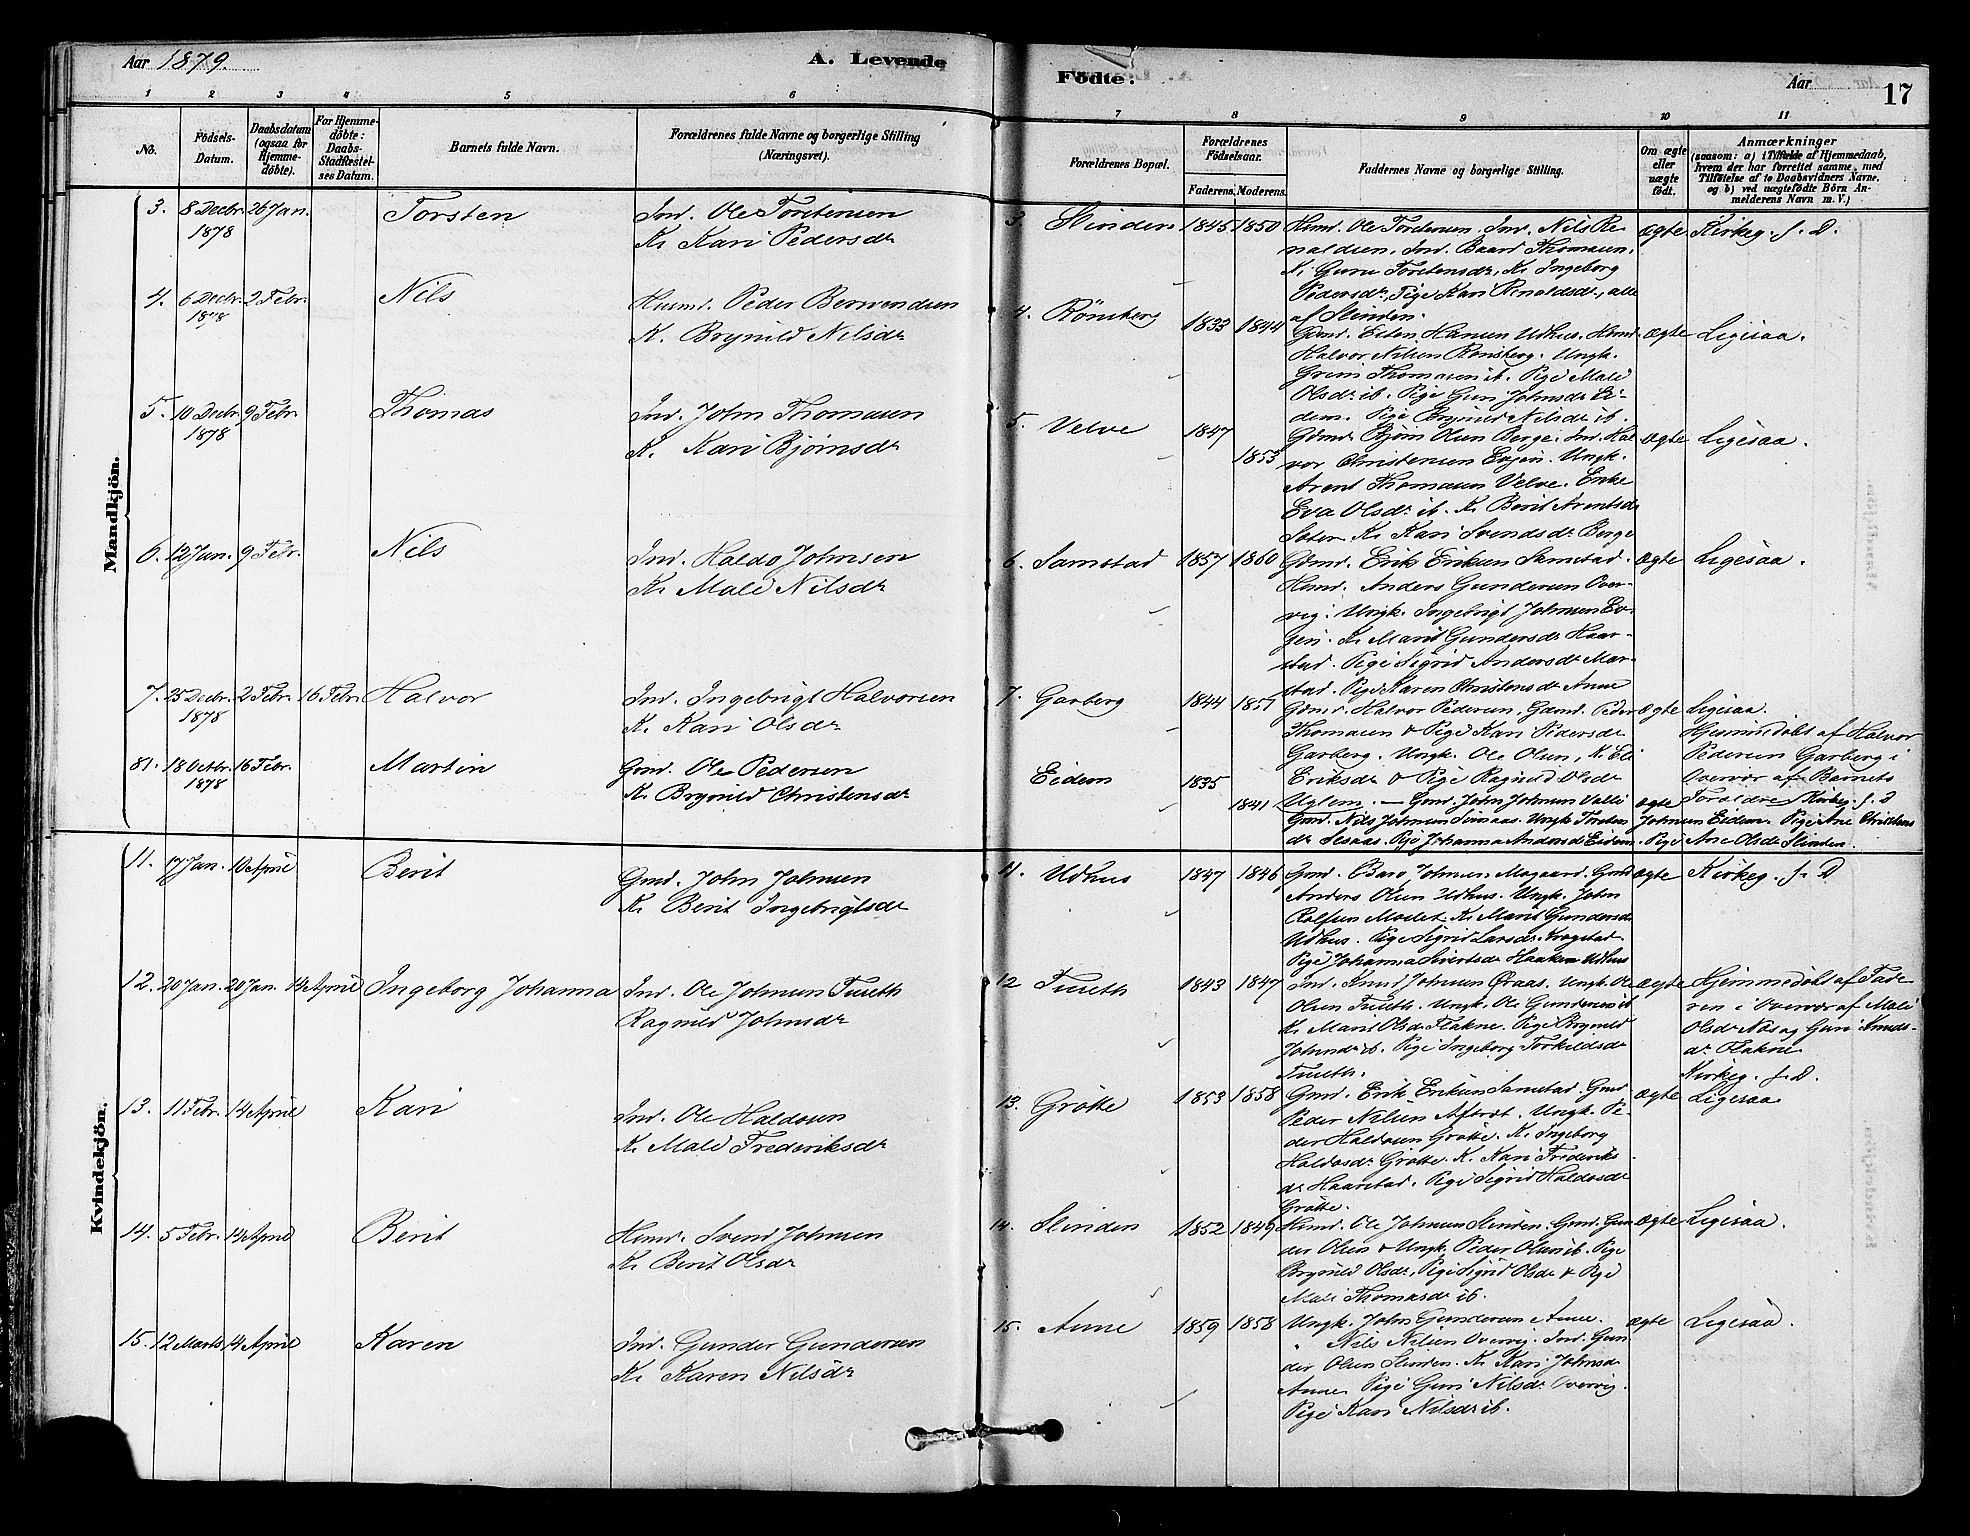 Aar 1879.
A. Levende
Födte:
Aar
17
1 2 3 4 5 6
7 8 9 10 11
No.
Födsels-Datum.
Daabsdatum (ogsaa for Hjemme-döbte).
For Hjemme-döbte: Daabs-Stadfæstel-ses Datum.
Barnets fulde Navn.
Forældrenes fulde Navne og borgerlige Stilling (Næringsvei).
Forældrenes Bopæl.
Forældrenes Födselsaar.
Faderens. Moderens.
Faddernes Navne og borgerlige Stilling.
Om ægte eller uægte födt.
Anmærkninger
(saasom: a) i Tilfælde af Hjemmedaab, hvem der har forrettet samme, med Tilföielse af to Daabsvidners Navne, og b) ved uægtefödte Börn An-melderens Navn m. V.)
Mandkjön.
3. 8 Decbr. 1878 26 Jan. Torsten
Ind. Ole Torstensen
K. Kari Pedersdr
3. Slinden 1845 1850
Hmd. Ole Torstensen. Ind. Nils Re-
naldsen. Ind. Baard Thomasen.
K. Guru Torstensdr, K. Ingeborg
Pedersdr, Pige Kari Renaldsdr, alle
af Slinden.
ægte Kirkeg. f. D.
4. 6 Decbr. 1878 2 Febr. Nils
Husm. Peder Berendsen
K. Brynild Nilsdr
4. Rönsberg 1833 1844
Gdmd. Esten Hansen Udhus. Hsmd
Halvor Nilsen Rönsberg. Ungk.
Grim Thomasen ib. Pige Mali
Olsdr ib. Pige Guri Johnsdr Ei-
dem. Pige Brynild Nilsdr ib.
ægte Ligesaa.
5. 10 Decbr. 1878 9 Febr. Thomas
Ind. John Thomasen
K. Kari Bjørnsdr
5. Velve 1847 1853
Gdmd. Bjørn Olsen Berge. Ind. Hal-
vor Christensen Evjen. Ungk.
Arent Thomasen Velve. Enke
Eva Olsdr ib. K. Berit Arentsdr
K. Kari Svendsdr Berge
ægte Ligesaa.
6. 12 Jan. 9 Febr. Nils
Ind. Haldo Johnsen
K. Mali Nilsdr
6. Samstad 1857 1860
Gdmd. Erik Eriksen Samstad.
Hsmd. Anders Gundersen Over-
vig. Ungk. Ingebrigt Johnsen Ev-
jen. K. Marit Gundersdr Haar-
stad. Pige Sigrid Andersdr Mar-
stad. Pige Karen Christensdr Aune
ægte Ligesaa.
7. 25 Decbr. 1878 2 Febr. 16 Febr. Halvor
Ind. Ingebrigt Halvorsen
K. Kari Olsdr
7. Garberg 1844 1851
Gdmd. Halvor Pedersen, Gdmd. Peder
Thomasen & Pige Kari Pedersdr
Garberg. Ungk. Ole Olsen, K. Eli
Eriksdr & Pige Ragnild Olsdr
Uglem.
ægte Ligesaa.
Hjemmedöbt af Halvor
Pedersen Garberg i
Overvær af Barnets
Forældre
81. 18 Octbr. 1878 16 Febr. Martin
Gmd. Ole Pedersen
K. Brynild Christensdr
Eidem 1835 1841
Gmd. John Johnsen Valli
ægte Kirkeg. f. D
Gmd. Nils Johnsen Ungk. Torsten Johnsen Eidem. Pige Ane Christens
dr Sesaas. Pige Johanna Andersd Eidem. Pige Ane Olsdr Slinden.
Kvindekjön.
11. 17 Jan. 10 April Berit
Gmd. John Johnsen
K. Berit Ingebrigtsdr
11. Udhus 1847 1846
Gmd. Baro Johnsen Mogaard. Gmd
Anders Olsen Udhus. Ungk. John
Rolfsen Moslet. K. Marit Gundersdr
Udhus. Pige Sigrid Larsdr Krogstad
Pige Johanna Sivertsdr Haaken Udhus
ægte Kirkeg. f. D
12. 20 Jan. 20 Jan. 14 April Ingeborg Johanna
Ind. Ole Johnsen Tuseth
Ragnild Johnsdr
12 Tuseth 1843 1847
Ind. Knud Johnsen Øraas. Ungk. Ole
Olsen Tuseth. Ungk. Ole Gundersen ib
K. Marit Olsdr Flakne. Pige Brynild
Johnsdr ib. Pige Ingeborg Torkildsdr
Tuseth.
ægte Hjemmedöbt af Fade
ren i Overvær af Mali
Olsdr Næs og Guri Knuds-
dr Flakne
Kirkeg. f. D.
13. 11 Febr. 14 April Kari
Ind. Ole Haldosen
K. Mali Frederiksdr
13. Grötte 1853 1858
Gmd. Erik Eriksen Samstad. Gmd
Peder Nilsen Aftret. Ungk. Pe-
der Haldosen Grötte. K. Ingeborg
Haldosdr Grötte. K. Kari Frederiks-
dr Haarstad. Pige Sigrid Haldosdr
Grötte.
ægte Ligesaa
14. 5 Febr. 14 April Berit
Hsmd. Svend Johnsen
K. Berit Olsdr
14. Slinden 1852 1849
Hsmd. Ole Johnsen Slinden. Gmd. Gun
der Olsen & Ungk. Peder Olsen ib. Pige
Brynild Olsdr, Pige Sigrid Olsdr & Pige
Mali Thomasdr ib.
ægte Ligesaa.
15. 12 Marts 14 April Karen
Ind. Gunder Gundersen
K. Karen Nilsdr
15. Aune 1859 1858
Ungk. John Gundersen Aune.
" Nils Nilsen Overvig. Ind. Gun-
der Olsen Slinden. K. Kari Johnsdr
Aune. Pige Guri Nilsdr Overvig.
Pige Kari Nilsdr ib.
ægte Ligesaa.